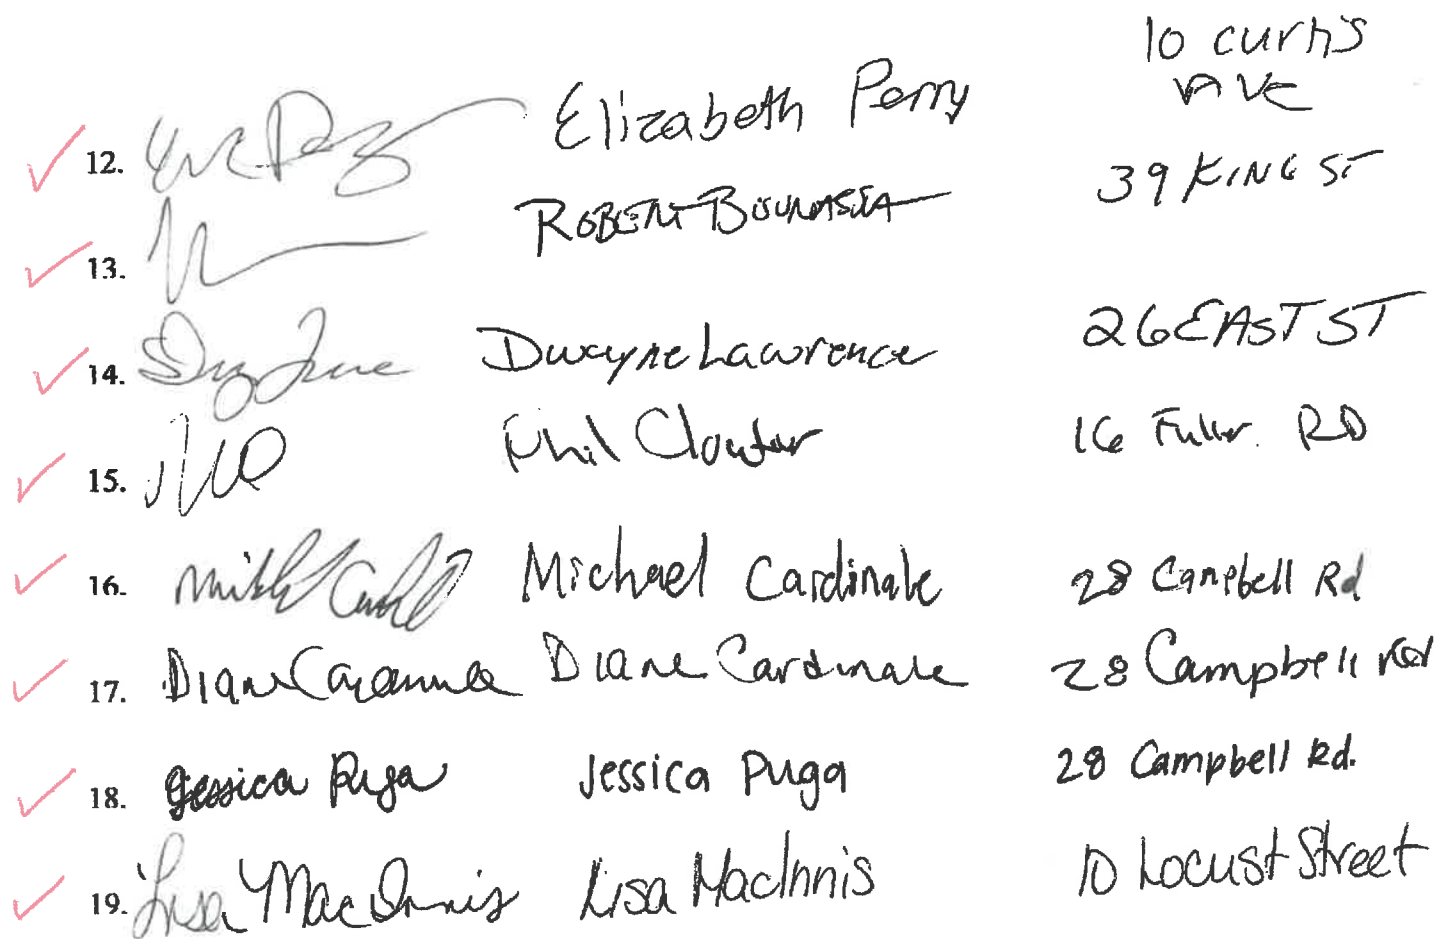 10 curtis
AVE
12. Elizabeth Perry
39 KING ST
13. ROBERT
26 EAST ST
14. Dwayne Lawrence
15. Phil Cloutier 16 Fuller RD
16. Michael Cardinale 28 Campbell Rd
17. Diane Cardinale Diane Cardinale 28 Campbell Rd
18. Jessica Puga Jessica Puga 28 Campbell Rd.
19. Lisa MacInnis Lisa MacInnis 10 Locust Street